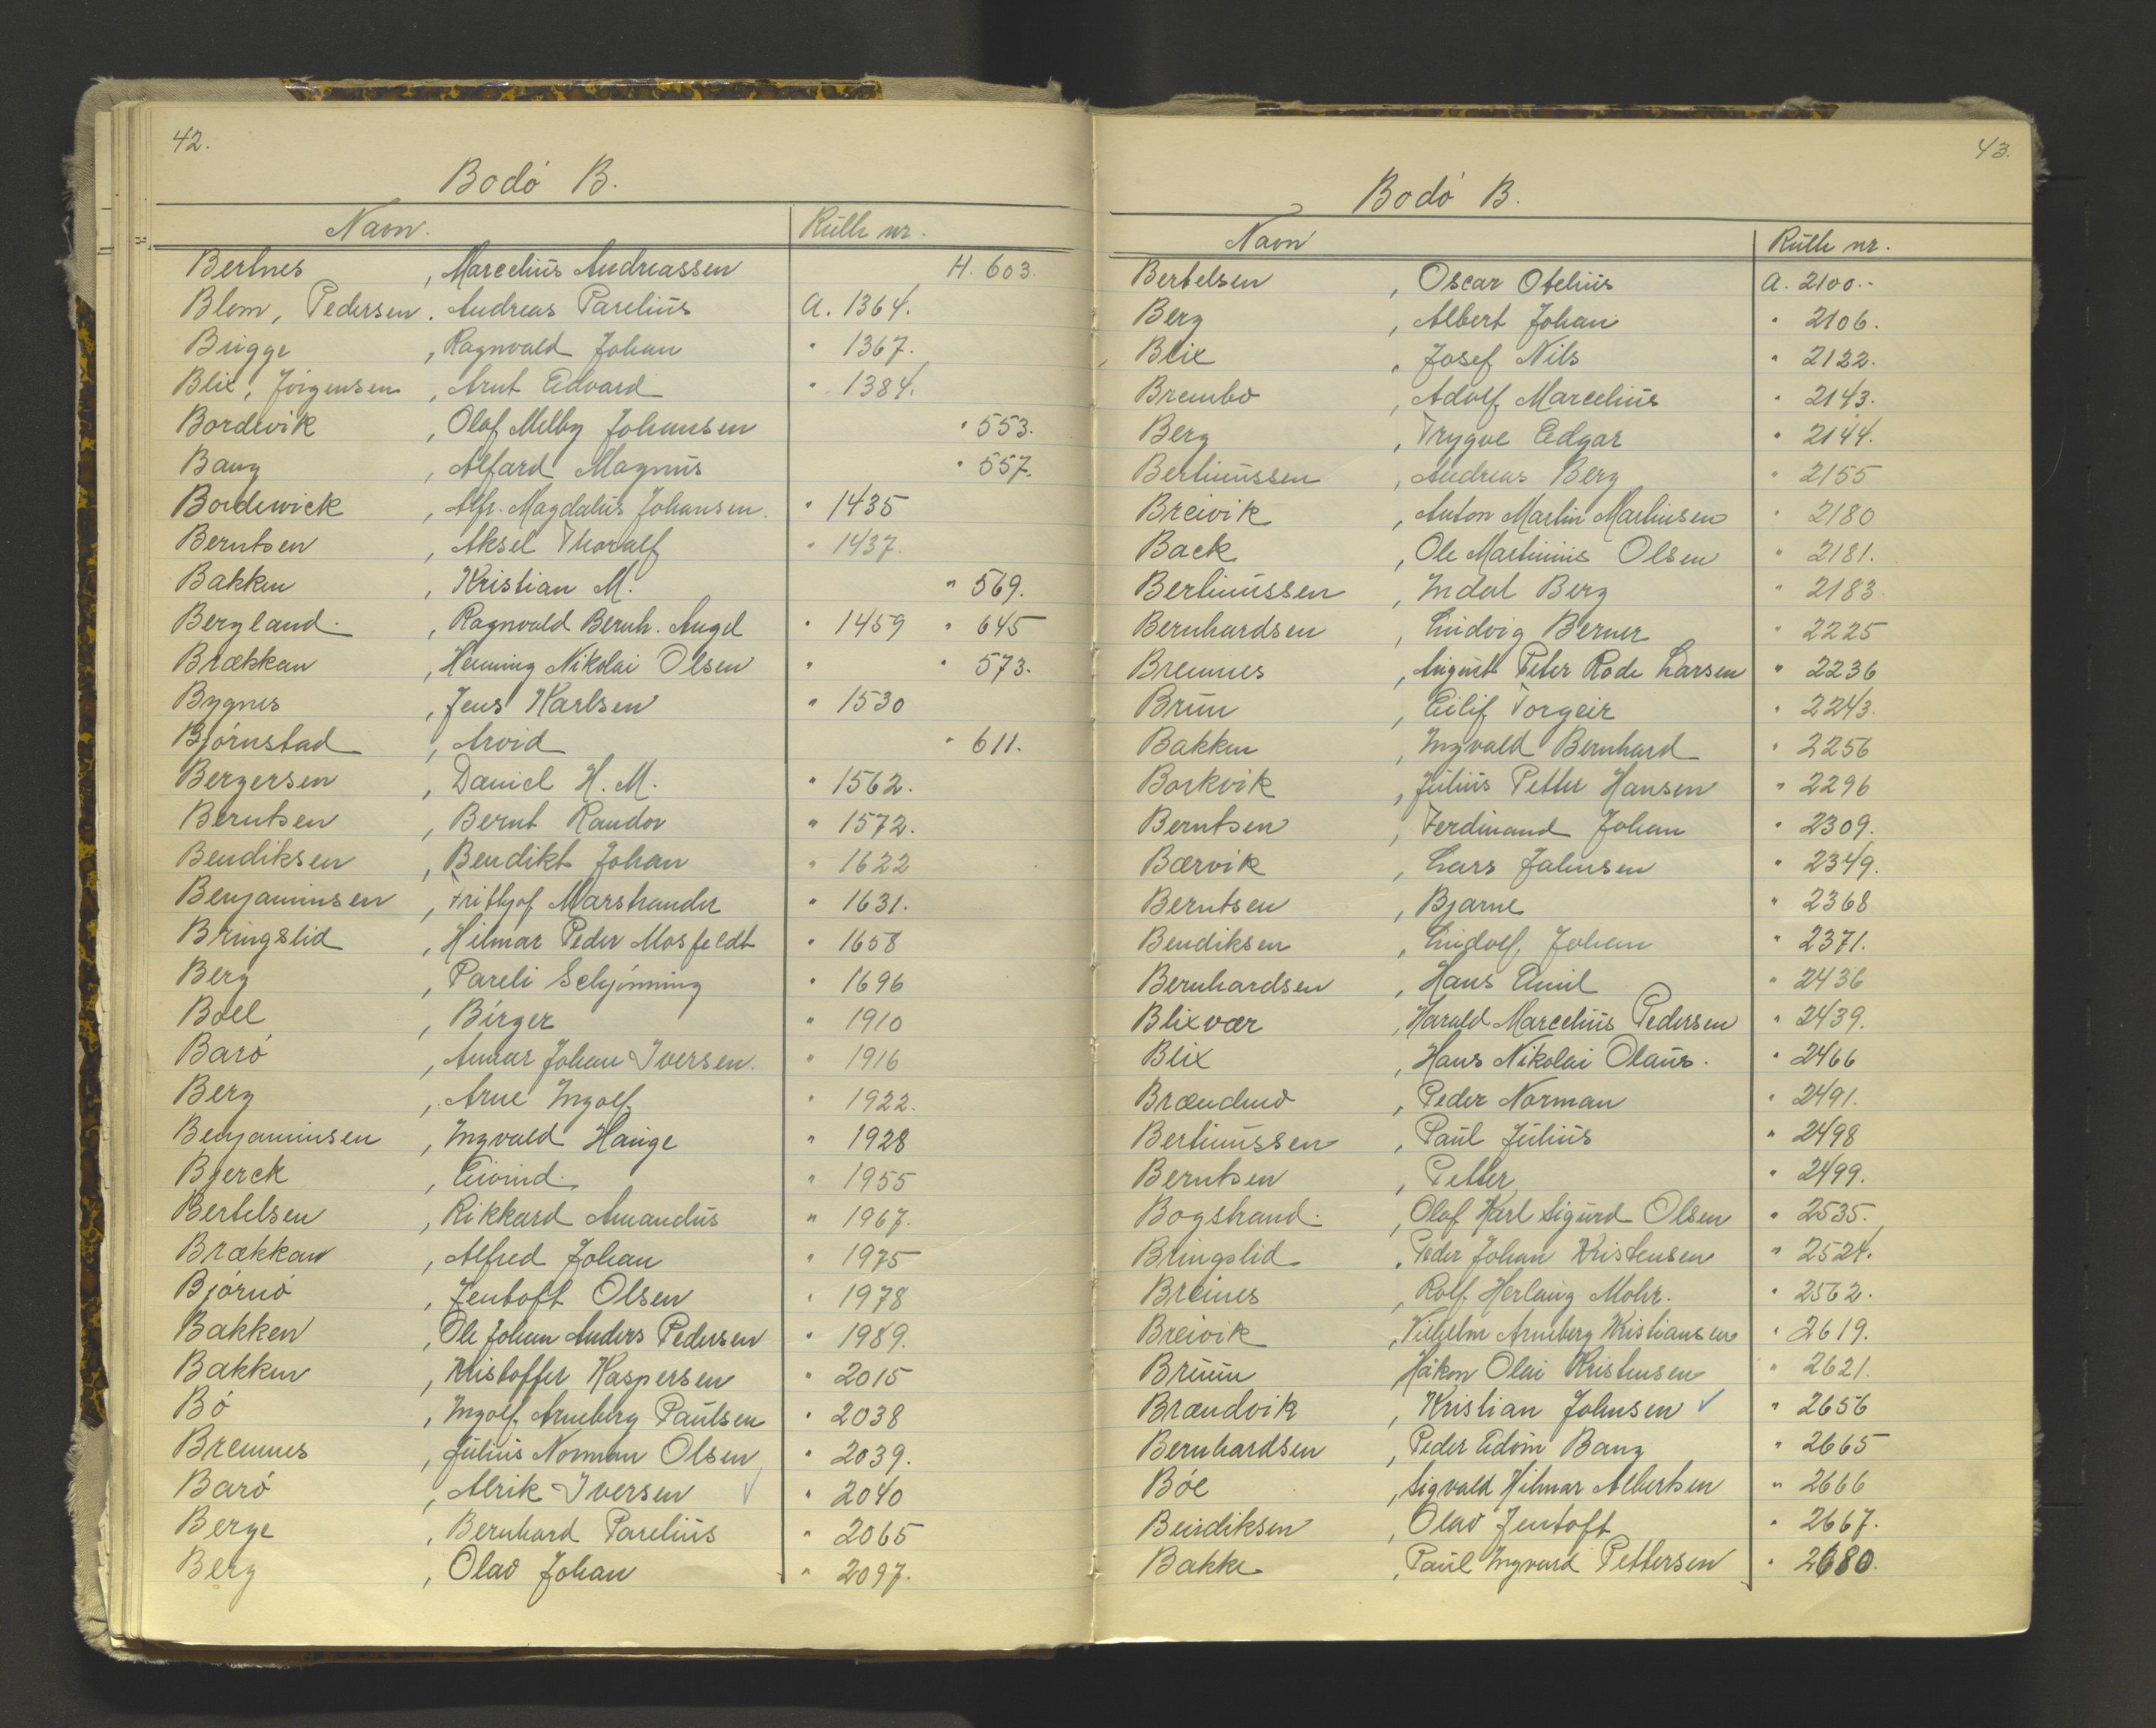 42.
Bodø B.
Navn. Rulle nr.
Bertnes , Marcelius Andreassen H. 603.
Blom, Pedersen , Andreas Parelius A. 1364.
Brigge , Ragnvald Johan " 1367.
Blix, Jörgensen , Arnt Edvard " 1384.
Bordevik , Olaf Melby Johansen " 553.
Bang , Alfard Magnus " 557.
Bordewick , Alfr. Magdalus Johansen. " 1435
Berntsen , Aksel Thoralf " 1437.
Bakken , Kristian M. " 569.
Bergland , Ragnvald Bernh. Angel " 1459 " 645
Brækkan , Henning Nikolai Olsen " " 573.
Bygnes , Jens Karlsen " 1530
Bjørnstad , Arvid " 611.
Bergersen , Daniel H. M. " 1562.
Berntsen , Bernt Randor " 1572.
Bendiksen , Bendikt Johan " 1622
Benjaminsen , Frithjof Marstrander " 1631.
Bringslid , Hilmar Peder Mosfeldt " 1658
Berg , Pareli Schjønning " 1696
Boll , Birger " 1910
Barø , Annar Johan Iversen. " 1916
Berg , Arne Ingolf " 1922.
Benjaminsen , Ingvald Hauge " 1928
Bjerck , Eivind. " 1955
Bertelsen , Rikkard Amandus " 1967.
Brækkan , Alfred Johan " 1975
Bjørnø , Jentoft Olsen " 1978
Bakken , Ole Johan Anders Pedersen " 1989.
Bakken , Kristoffer Kaspersen " 2015
Bø , Ingolf Arneberg Paulsen " 2038
Bremnes , Julius Norman Olsen " 2039.
Barø , Alrik Iversen ✓ " 2040
Berge , Bernhard Parelius " 2065
Berg , Olav Johan " 2097.
43.
Bodø B.
Navn Rulle nr.
Bertelsen , Oscar Otelius A. 2100.-
Berg , Albert Johan " 2106.
Blix , Josef Nils " 2122.
Brembo , Adolf Marcelius " 2143.
Berg , Trygve Edgar " 2144.
Bertinussen , Andreas Berg " 2155
Breivik , Anton Martin Martinsen " 2180
Back , Ole Martinius Olsen " 2181.
Bertinussen , Indal Berg " 2183.
Bernhardsen , Ludvig Berner " 2225
Bremnes , August Peter Rode Larsen " 2236
Brun , Eilif Torgeir " 2243.
Bakken , Ingvald Bernhard " 2256
Borkvik , Julius Petter Hansen " 2296
Berntsen , Ferdinand Johan " 2309.
Bærvik , Lars Jahnsen " 2349.
Berntsen , Bjarne " 2368
Bendiksen , Lindolf Johan " 2371.
Bernhardsen , Hans Emil " 2436
Blixvær , Harald Marcelius Pedersen " 2439.
Blix , Hans Nikolai Olaus. " 2466
Brændmo , Peder Norman " 2491.
Bertinussen , Paul Julius " 2498
Berntsen , Petter " 2499.
Bogstrand , Olaf Karl Sigurd Olsen " 2535.
Bringslid , Peder Johan Kristensen " 2524.
Breines , Rolf Herlaug Mohr. " 2562.
Breivik , Vilhelm Arneberg Kristiansen " 2619.
Bruun Håkon Olai Kristensen " 2621.
Brandvik , Kristian Johnsen ✓ " 2656
Bernhardsen , Peder Edvin Bang " 2665
Bøe , Sigvald Hilmar Albertsen " 2666
Bendiksen , Olav Jentoft " 2667.
Bakke , Paul Ingvard Pettersen " 2680.